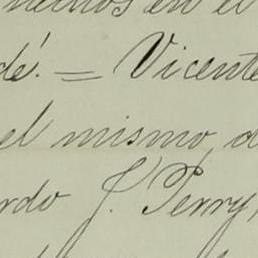 en el
dé. = Vicente
el mismo, d
rdo J. Perry,